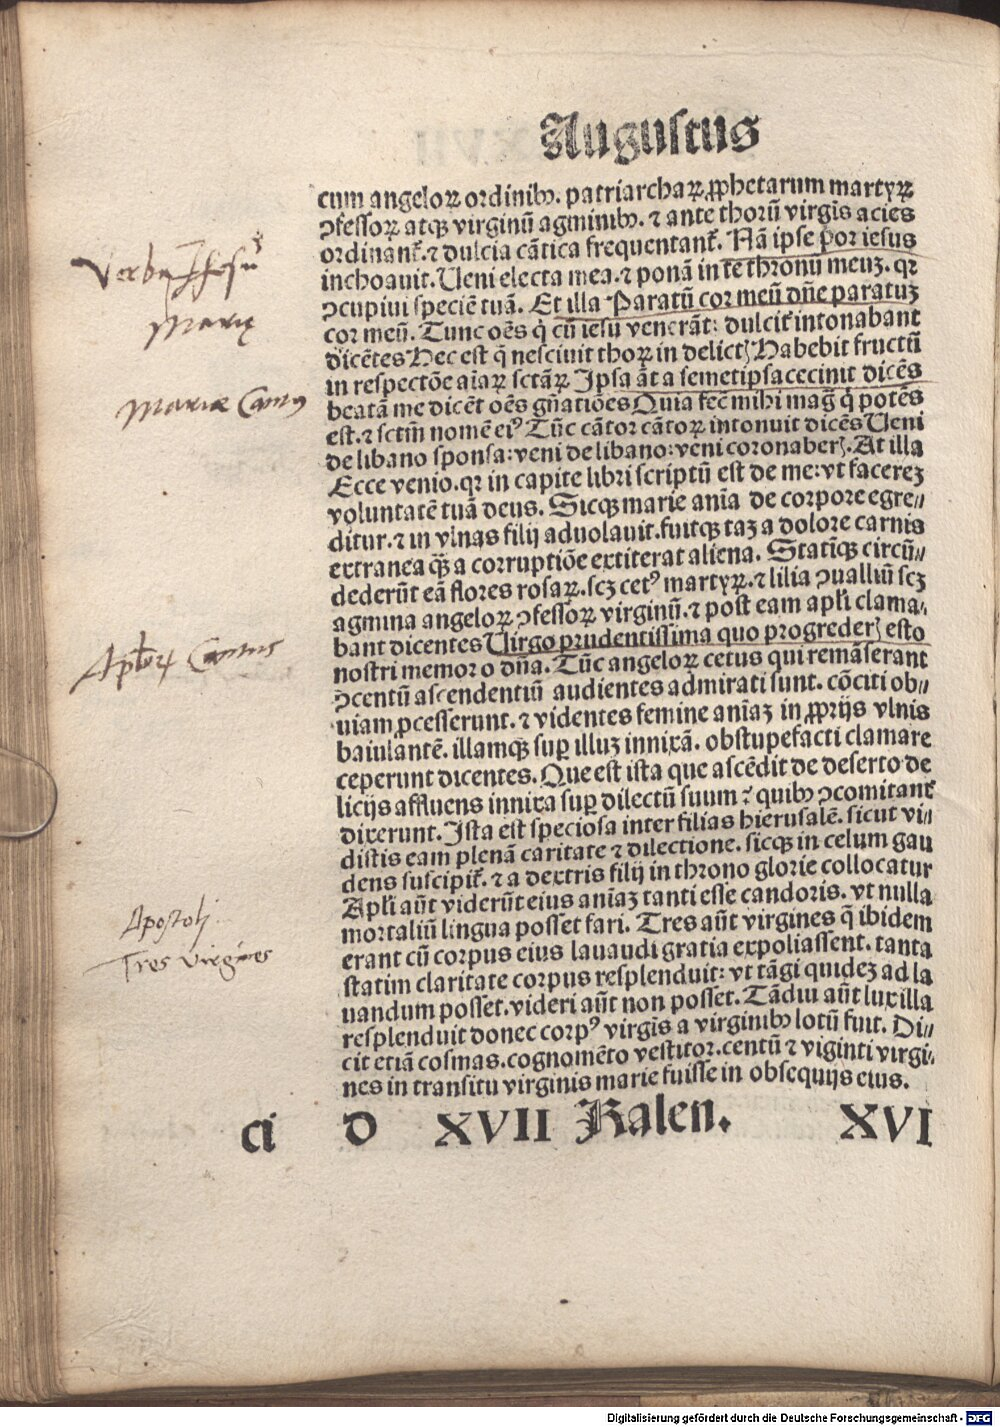 Augustus
cum angeloꝝ ordinibꝰ. patriarchaꝝ ꝓphetarum martyꝝ
ꝯfessoꝝ atqꝫ virginū agminibꝰ. ⁊ ante thorū virgīs acies
ordinant᷑. ⁊ dulcia cātica frequentant᷑. Nā ipse por iesus
inchoauit. Ueni electa mea. ⁊ ponā in te thronū meuꝫ. qꝛ
ꝯcupiui speciē tuā. Et illa Paratū cor meū dn̄e paratuꝫ
cor meū. Tunc oēs q̇ cū iesu venerāt: dulcit᷑ intonabant
dicētes Hec est q̄ nesciuit thoꝝ in delictꝭ Habebit fructū
in respectōe aīaꝝ sctāꝝ Ipsa āt a semetipsa cecinit dicēs
beatā me dicēt oēs gn̄atiōes Quia fec̄ mihi maḡ q̇ potēs
est. ⁊ sctm̄ nomē eiꝰ Tūc cātor cātoꝝ intonuit dicēs Ueni
de libano sponsa: veni de libano: veni coronaberꝭ. At illa
Ecce venio. qꝛ in capite libri scriptū est de me: vt facereꝫ
voluntatē tuā deus. Sicqꝫ marie anīa de corpore egre⸗
ditur. ⁊ in vlnas filij aduolauit. fuitqꝫ taꝫ a dolore carnis
extranea qꝫ̄ a corruptiōe extiterat aliena. Statīqꝫ circū⸗
dederūt eā flores rosaꝝ. scꝫ cetꝰ martyꝝ. ⁊ lilia ꝯualliū scꝫ
agmina angeloꝝ ꝯfessoꝝ virginū. ⁊ post eam apl̄i clama⸗
bant dicentes Uirgo prudentissima quo progrederꝭ esto
nostri memor o dn̄a. Tūc angeloꝝ cetus qui remāserant
ꝯcentū ascendentiū audientes admirati sunt. cōciti ob⸗
uiam ꝓcesserunt. ⁊ videntes femine anīaꝫ in ꝓprijs vlnis
baiulantē. illamqꝫ suꝑ illuꝫ innixā. obstupefacti clamare
ceperunt dicentes. Que est ista que ascēdit de deserto de
licijs affluens innixa suꝑ dilectū suum ⁊ quibꝰ ꝯcomitant᷑
dixerunt. Ista est speciosa inter filias hierusalē. sicut vi⸗
distis eam plenā caritate ⁊ dilectione. sicqꝫ in celum gau
dens suscipit᷑. ⁊ a dextris filij in throno glorie collocatur
Apl̄i aūt viderūt eius aniaꝫ tanti esse candoris. vt nulla
mortaliū lingua posset fari. Tres aūt virgines q̄ ibidem
erant cū corpus eius lauaudi gratia expoliassent. tanta
statim claritate corpus resplenduit: vt tāgi quideꝫ ad la
uandum posset. videri aūt non posset. Tādiu aūt lux illa
resplenduit donec corpꝰ virgīs a virginibꝰ lotū fuit. Di⸗
cit etiā cosmas. cognomēto vestitor. centū ⁊ viginti virgi⸗
nes in transitu virginis marie fuisse in obsequijs eius.
ci D XVII Kalen. XVI
Verba Jhesu
Marię
Mariæ Cantus
Aplorꝝ Cantus
Apostoli
Tres virgines
Digitalisierung gefördert durch die Deutsche Forschungsgemeinschaft - DFG